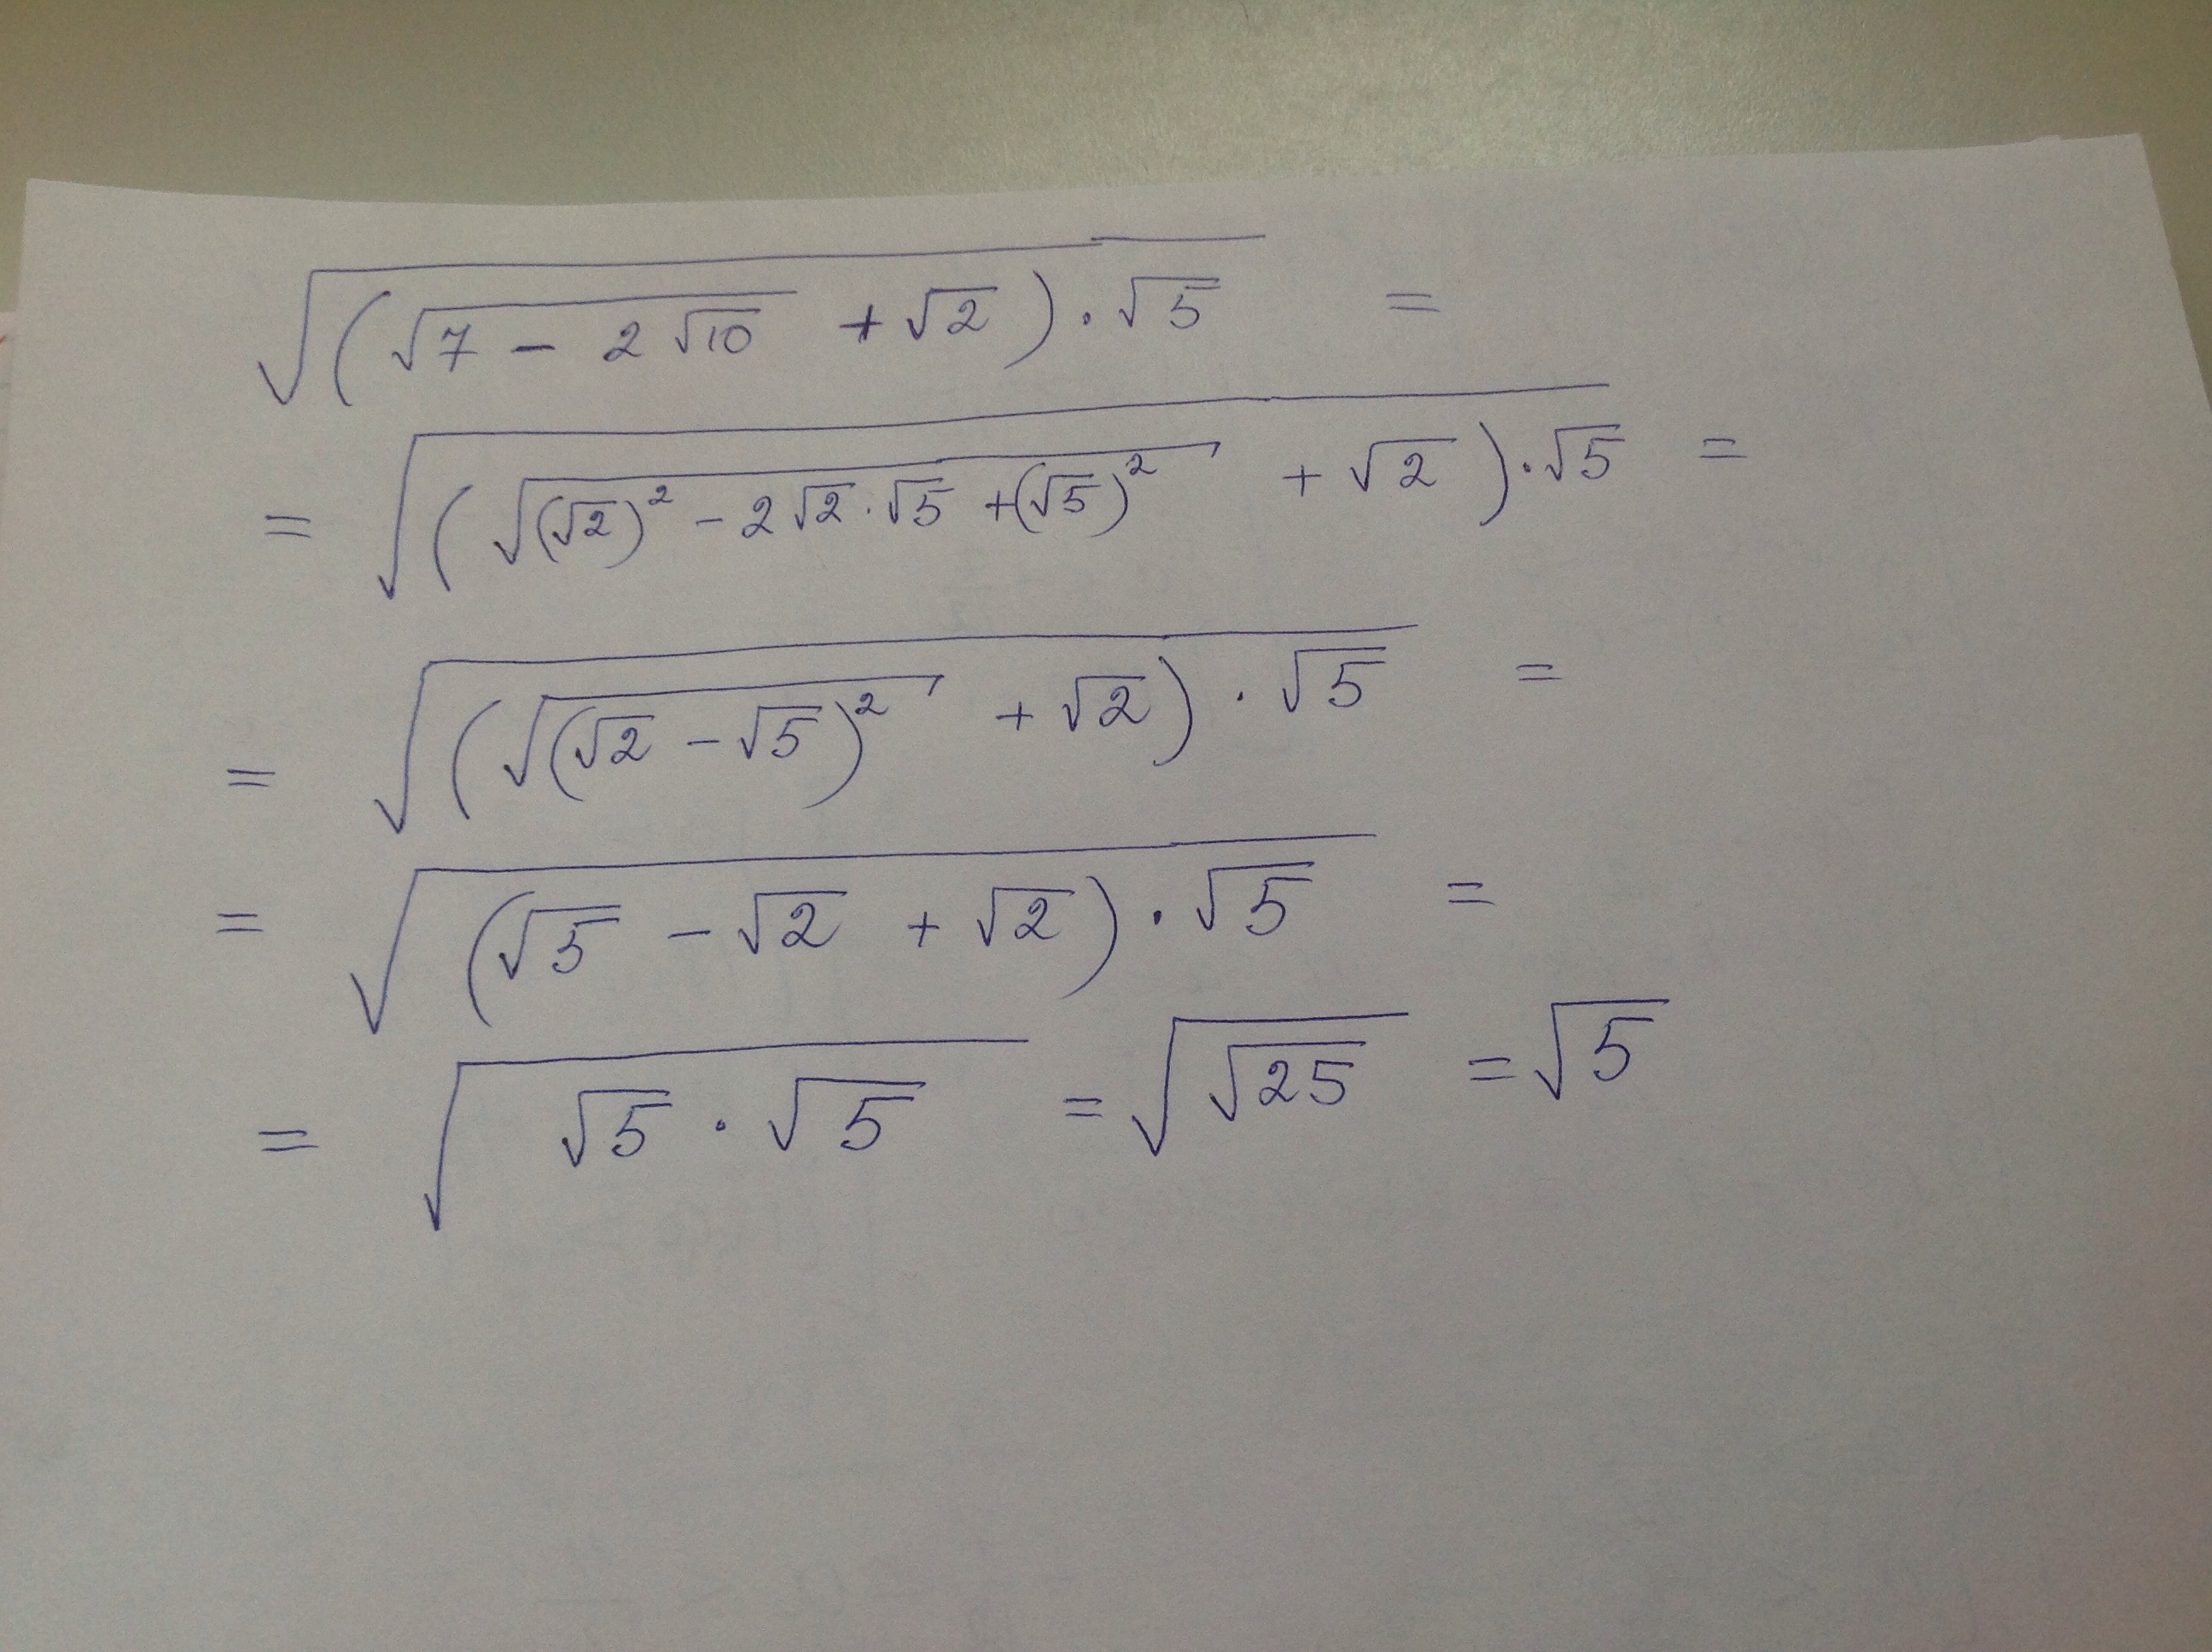 √((√(7 - 2√10) + √2) · √5) =
= √((√((√2)² - 2√2 · √5 + (√5)²) + √2) · √5) =
= √((√((√2 - √5)²) + √2) · √5) =
= √((√5 - √2 + √2) · √5) =
= √(√5 · √5) = √(√25) = √5